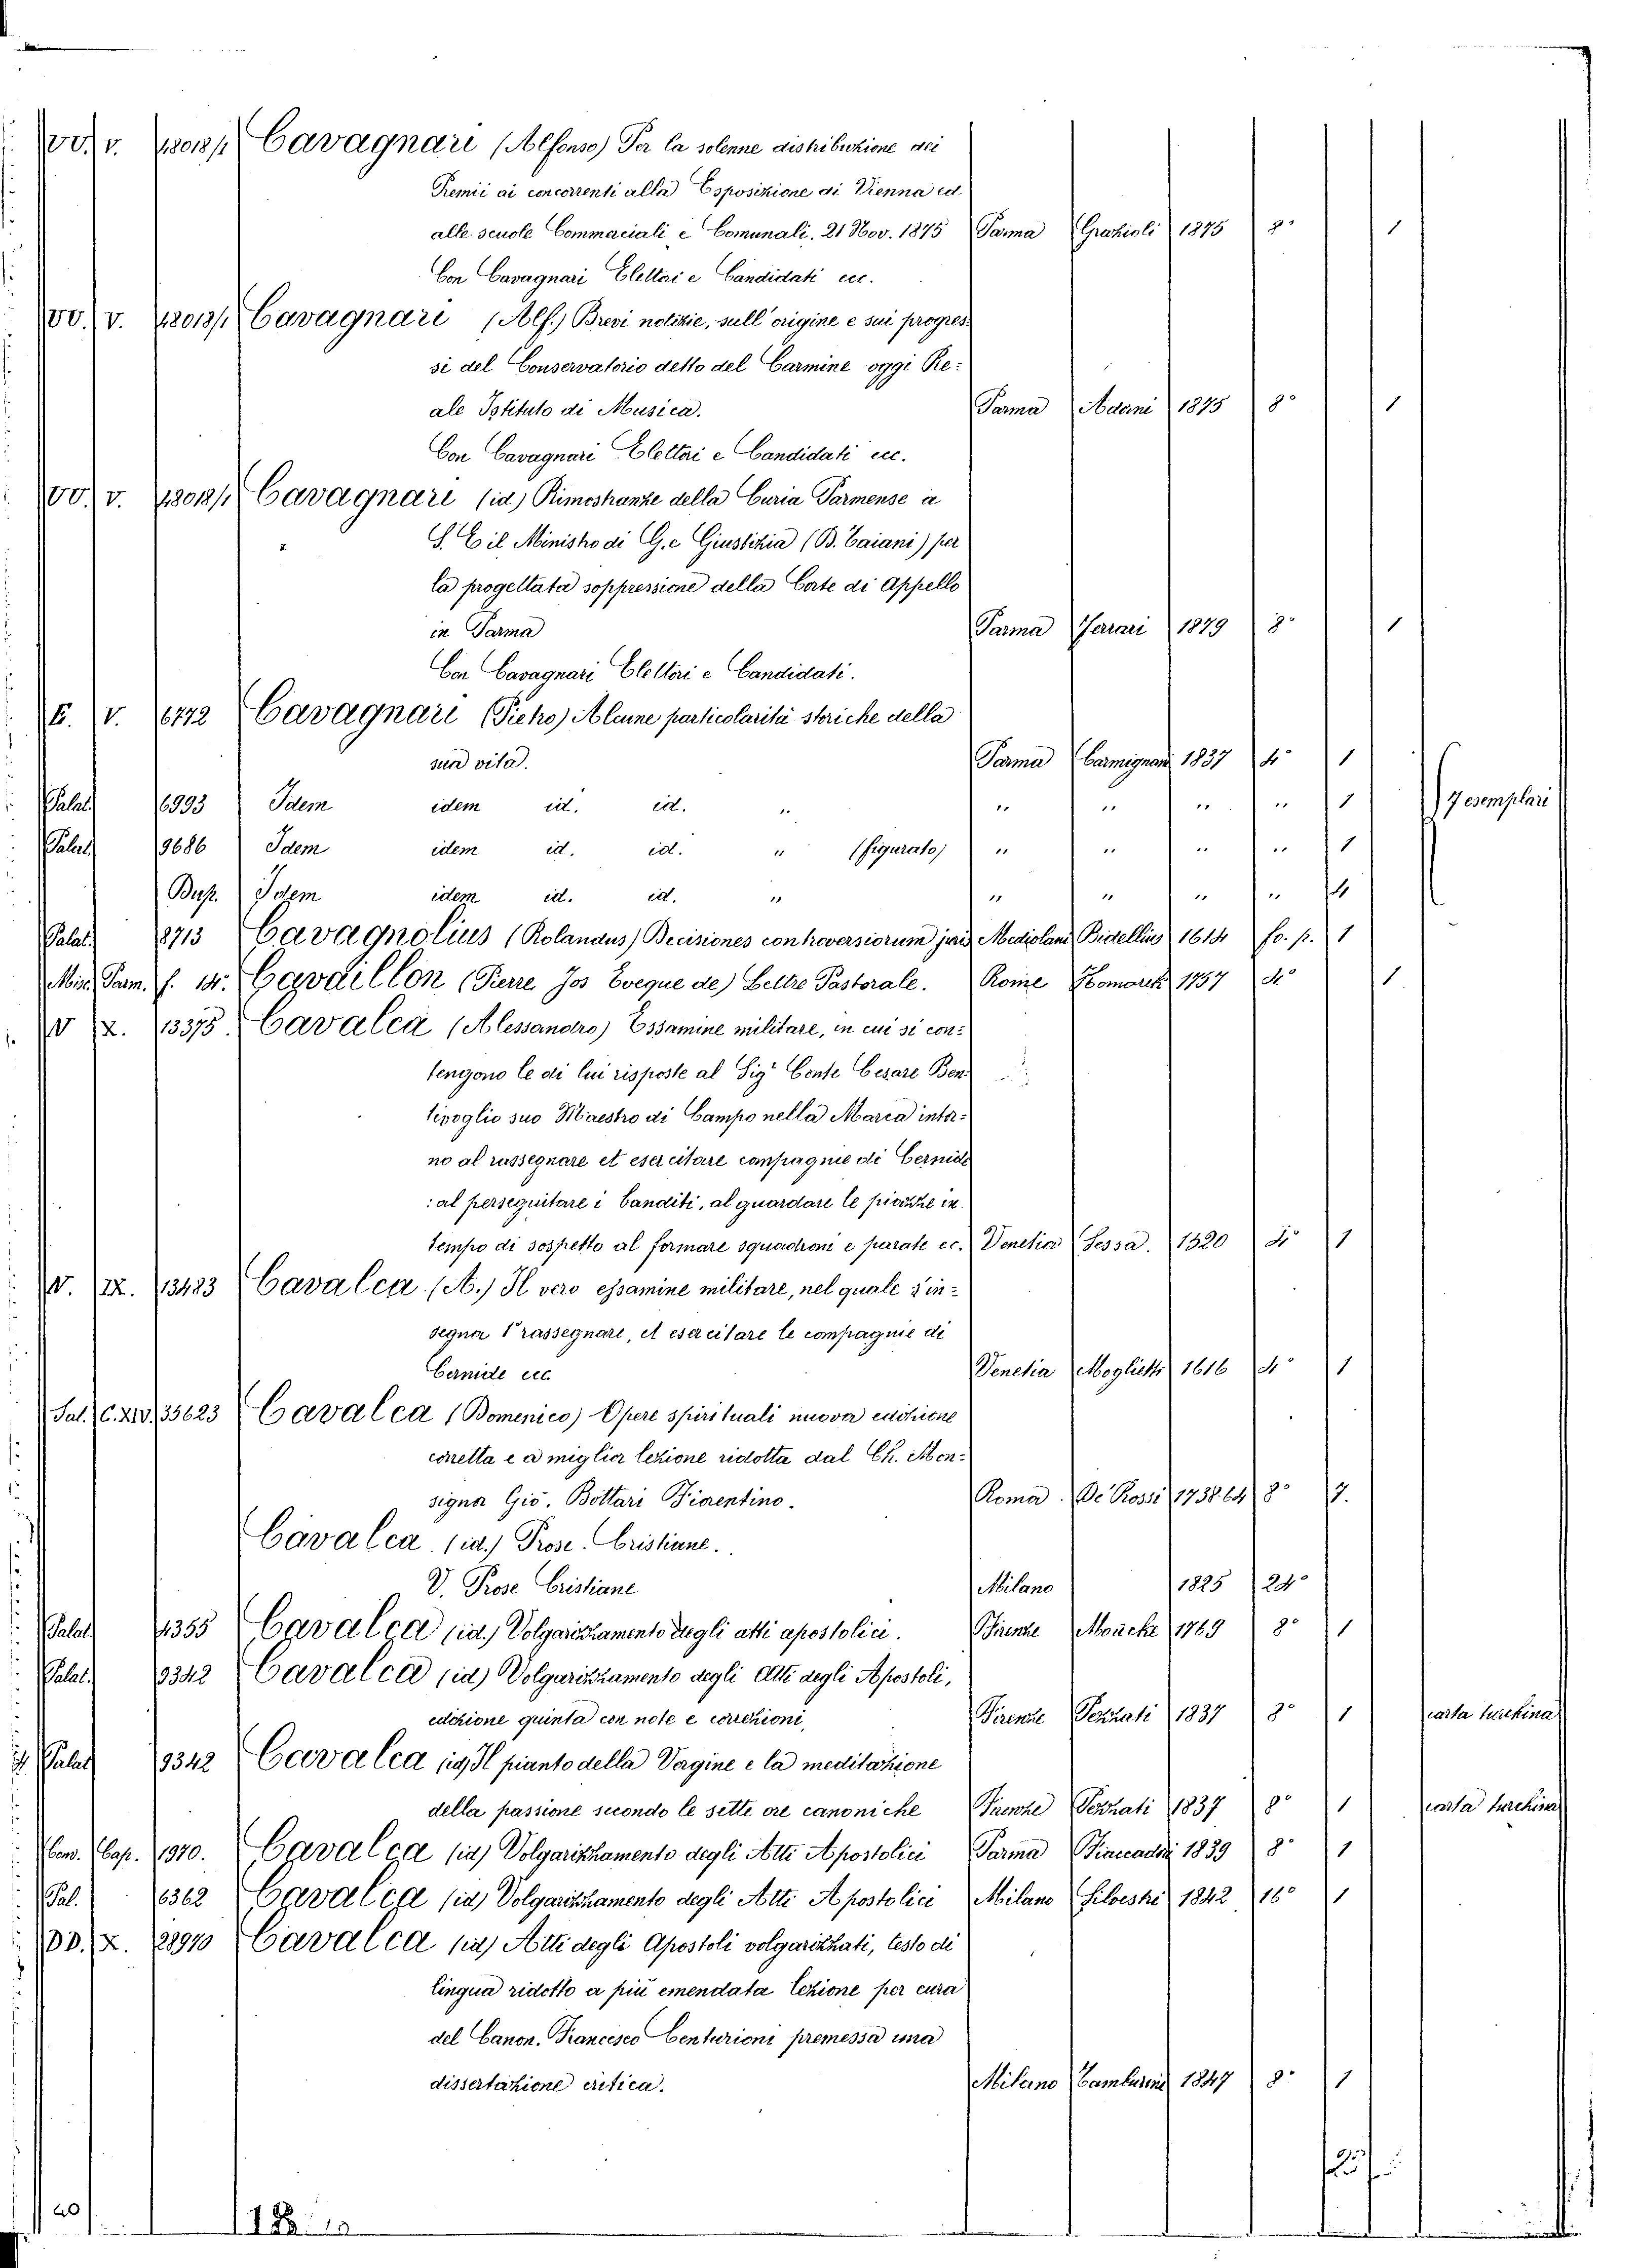 VV. V. 48018/1 Cavagnari (Alfonso) Per la solenne distribuzione dei
Premii ai concorrenti alla Esposizione di Vienna ed
alle scuole Commerciali e Comunali, 21 Nov. 1875 Parma Grazioli 1875 8° 1
Con Cavagnari Elettori e Candidati ecc.
VV. V. 48018/1 Cavagnari (Alf.) Brevi notizie, sull'origine e sui progres-
si del Conservatorio detto del Carmine oggi Re-
ale Istituto di Musica. Parma Adorni 1875 8° 1
Con Cavagnari Elettori e Candidati ecc.
VV. V. 48018/1 Cavagnari (id) Rimostranze della Curia Parmense a
S. E il Ministro di G. e Giustizia (B. Taiani) per
la progettata soppressione della Corte di Appello
in Parma Parma Ferrari 1879 8° 1
Con Cavagnari Elettori e Candidati.
E. V. 6772 Cavagnari (Pietro) Alcune particolarità storiche della
sua vita. Parma Carmignani 1837 4° 1
Palat. 6993 Idem idem id. id. " " " " " 1 7 esemplari
Palat. 9686 Idem idem id. id. " (figurato) " " " " 1
Bus. Idem idem id. id. " " " " " 4
Palat. 8713 Cavagnolius (Rolandus) Decisiones controversiorum juris Mediolani Bidellius 1614 fo. p. 1
Misc. Parm. f. 14. Cavaillon (Pierre Jos Eveque de) Lettre Pastorale. Rome Komarek 1757 4° 1
V X. 13375. Cavalca (Alessandro) Essamine militare, in cui si con-
tengono le di lui risposte al Sigr Conte Cesare Ben
tivoglio suo Maestro di Campo nella Marca inter-
no al rassegnare et esercitare compagnie di Cernide
: al perseguitare i banditi, al guardare le piazze in
tempo di sospetto al formare squadroni e parate ec. Venetia Sessa. 1620 4° 1
V. IX. 13483 Cavalca (A.) Il vero essamine militare, nel quale s'in-
segna rassegnare, et esercitare le compagnie di
Cernide ecc Venetia Moglietti 1616 4° 1
Sal. C. XIV. 35623 Cavalca (Domenico) Opere spirituali nuova edizione
corretta e a miglior lezione ridotta dal Ch. Mon-
signor Gio. Bottari Fiorentino. Roma. De Rossi 1738 64 8° 7.
Cavalca (id.) Prose Cristiane.
V. Prose Cristiane Milano 1825 24°
Palat. 4355 Cavalca (id.) Volgarizzamento degli atti apostolici. Firenze Moücke 1769 8° 1
Palat. 9342 Cavalca (id) Volgarizzamento degli Atti degli Apostoli,
edizione quinta con note e correzioni, Firenze Pezzati 1837 8° 1 carta turchina
Palat 9342 Cavalca (id) Il pianto della Vergine e la meditazione
della passione secondo le sette ore canoniche Firenze Pezzati 1837 8° 1 carta turchina
Con. Cap. 1970. Cavalca (id) Volgarizzamento degli Atti Apostolici Parma Fiaccadori 1839 8° 1
Pal. 6362 Cavalca (id) Volgarizzamento degli Atti Apostolici Milano Silvestri 1842 16° 1
DD. X. 28970 Cavalca (id) Atti degli Apostoli volgarizzati, testo di
lingua ridotto a più emendata lezione per cura
del Canon. Francesco Centurioni premessa una
dissertazione critica. Milano Tamburini 1847 8° 1
25
20
18